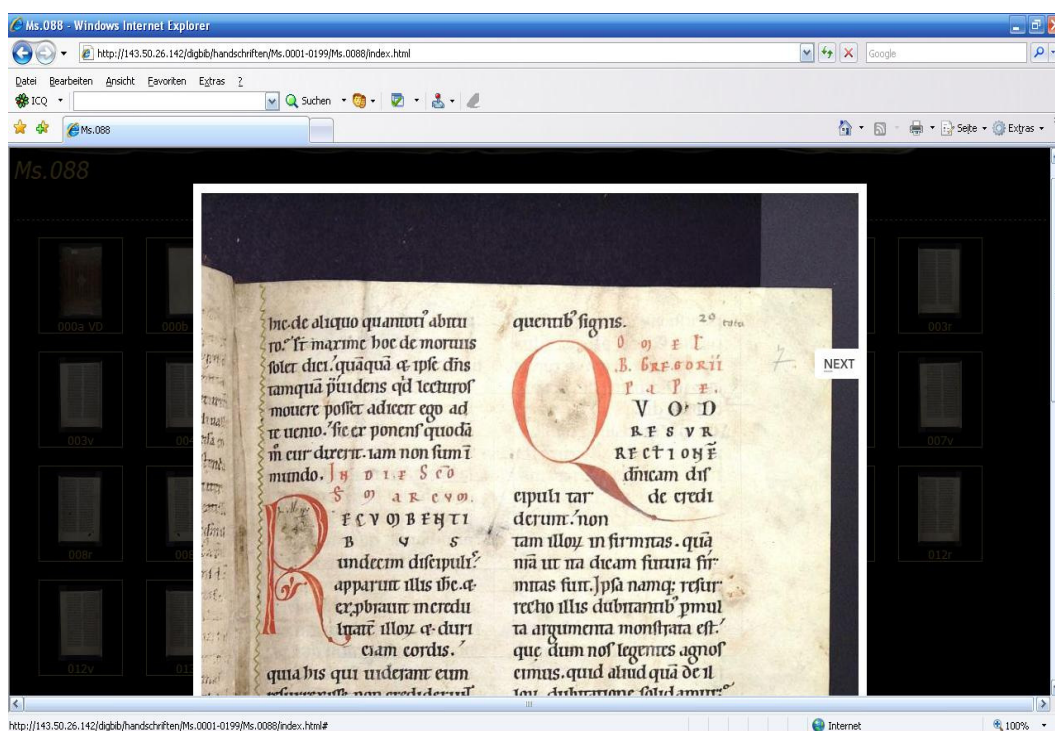 Ms.088 - Windows Internet Explorer
http://143.50.26.142/digbib/handschriften/Ms.0001-0199/Ms.0088/index.html
Google
Datei Bearbeiten Ansicht Favoriten Extras ?
ICQ
Suchen
Ms.088
Seite
Extras
Ms.088
000a VD
000b
003r
003v
004
007v
008r
008
012r
012v
013
NEXT
hic. de aliquo abitu
ro. maxime hoc de
solet dici. quāquā & ipse dn̄s
tamquā p̄uidens qd lecturos
mouere posset adiecit ego ad
te uenio. sic exponens quodā
m̄ cur dixerit. iam non sum ī
mundo. IN DIE SCO
S MARCVM.
RECVMBENTI
B U S
undecim discipulis
apparuit illis ihc. &
exprobrauit incredu
litatē illoꝝ & duri
ciam cordis.
quia his qui uiderant eum
resurrexisse non crediderunt
quentib' signis.
20
OMEL
.B. GREGORII
PAPE.
7.
QVOD
RESVR
RECTIONĒ
dn̄icam dis
cipuli tar de credi
derunt. non
tam illoꝝ infirmitas. quā
nr̄a ut ita dicam futura fir
mitas fuit. Ipsa namq; resur
rectio illis dubitantib' p mul
ta argumenta monstrata est.
que dum nos legentes agnos
cimus. quid aliud quā de il
loꝝ dubitatione solidamur
http://143.50.26.142/digbib/handschriften/Ms.0001-0199/Ms.0088/index.html#
Internet
100%